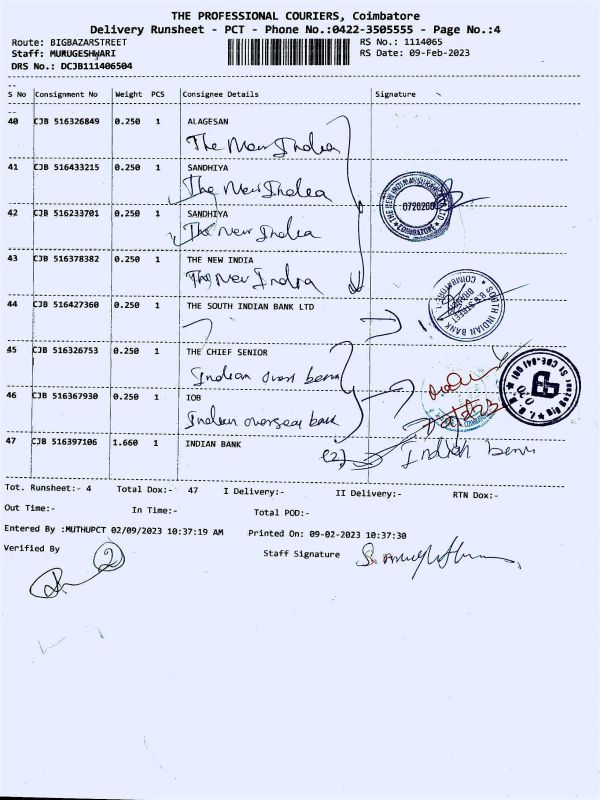 THE PROFESSIONAL COURIERS, Coimbatore
Delivery Runsheet - PCT - Phone No.:0422-3505555 - Page No.:4
Route: BIGBAZARSTREET RS No.: 1114065
Staff: MURUGESHWARI RS Date: 09-Feb-2023
DRS No.: DCJB111406504
S No Consignment No Weight PCS Consignee Details Signature
40 CJB 516326849 0.250 1 ALAGESAN
The New India
41 CJB 516433215 0.250 1 SANDHIYA
The New India
42 CJB 516233701 0.250 1 SANDHIYA
The New India
43 CJB 516378382 0.250 1 THE NEW INDIA
The New India
44 CJB 516427360 0.250 1 THE SOUTH INDIAN BANK LTD
45 CJB 516326753 0.250 1 THE CHIEF SENIOR
Indian overs bank
46 CJB 516367930 0.250 1 IOB
Indian overseas bank
47 CJB 516397106 1.660 1 INDIAN BANK
(2) Indian bank
720260
COIMBATORE
SOUTH INDIAN BANK
B.B. STREET
COIMBATORE
Tot. Runsheet:- 4 Total Dox:- 47 I Delivery:- II Delivery:- RTN Dox:-
Out Time:- In Time:- Total POD:-
Entered By :MUTHUPCT 02/09/2023 10:37:19 AM Printed On: 09-02-2023 10:37:30
Verified By Staff Signature
2